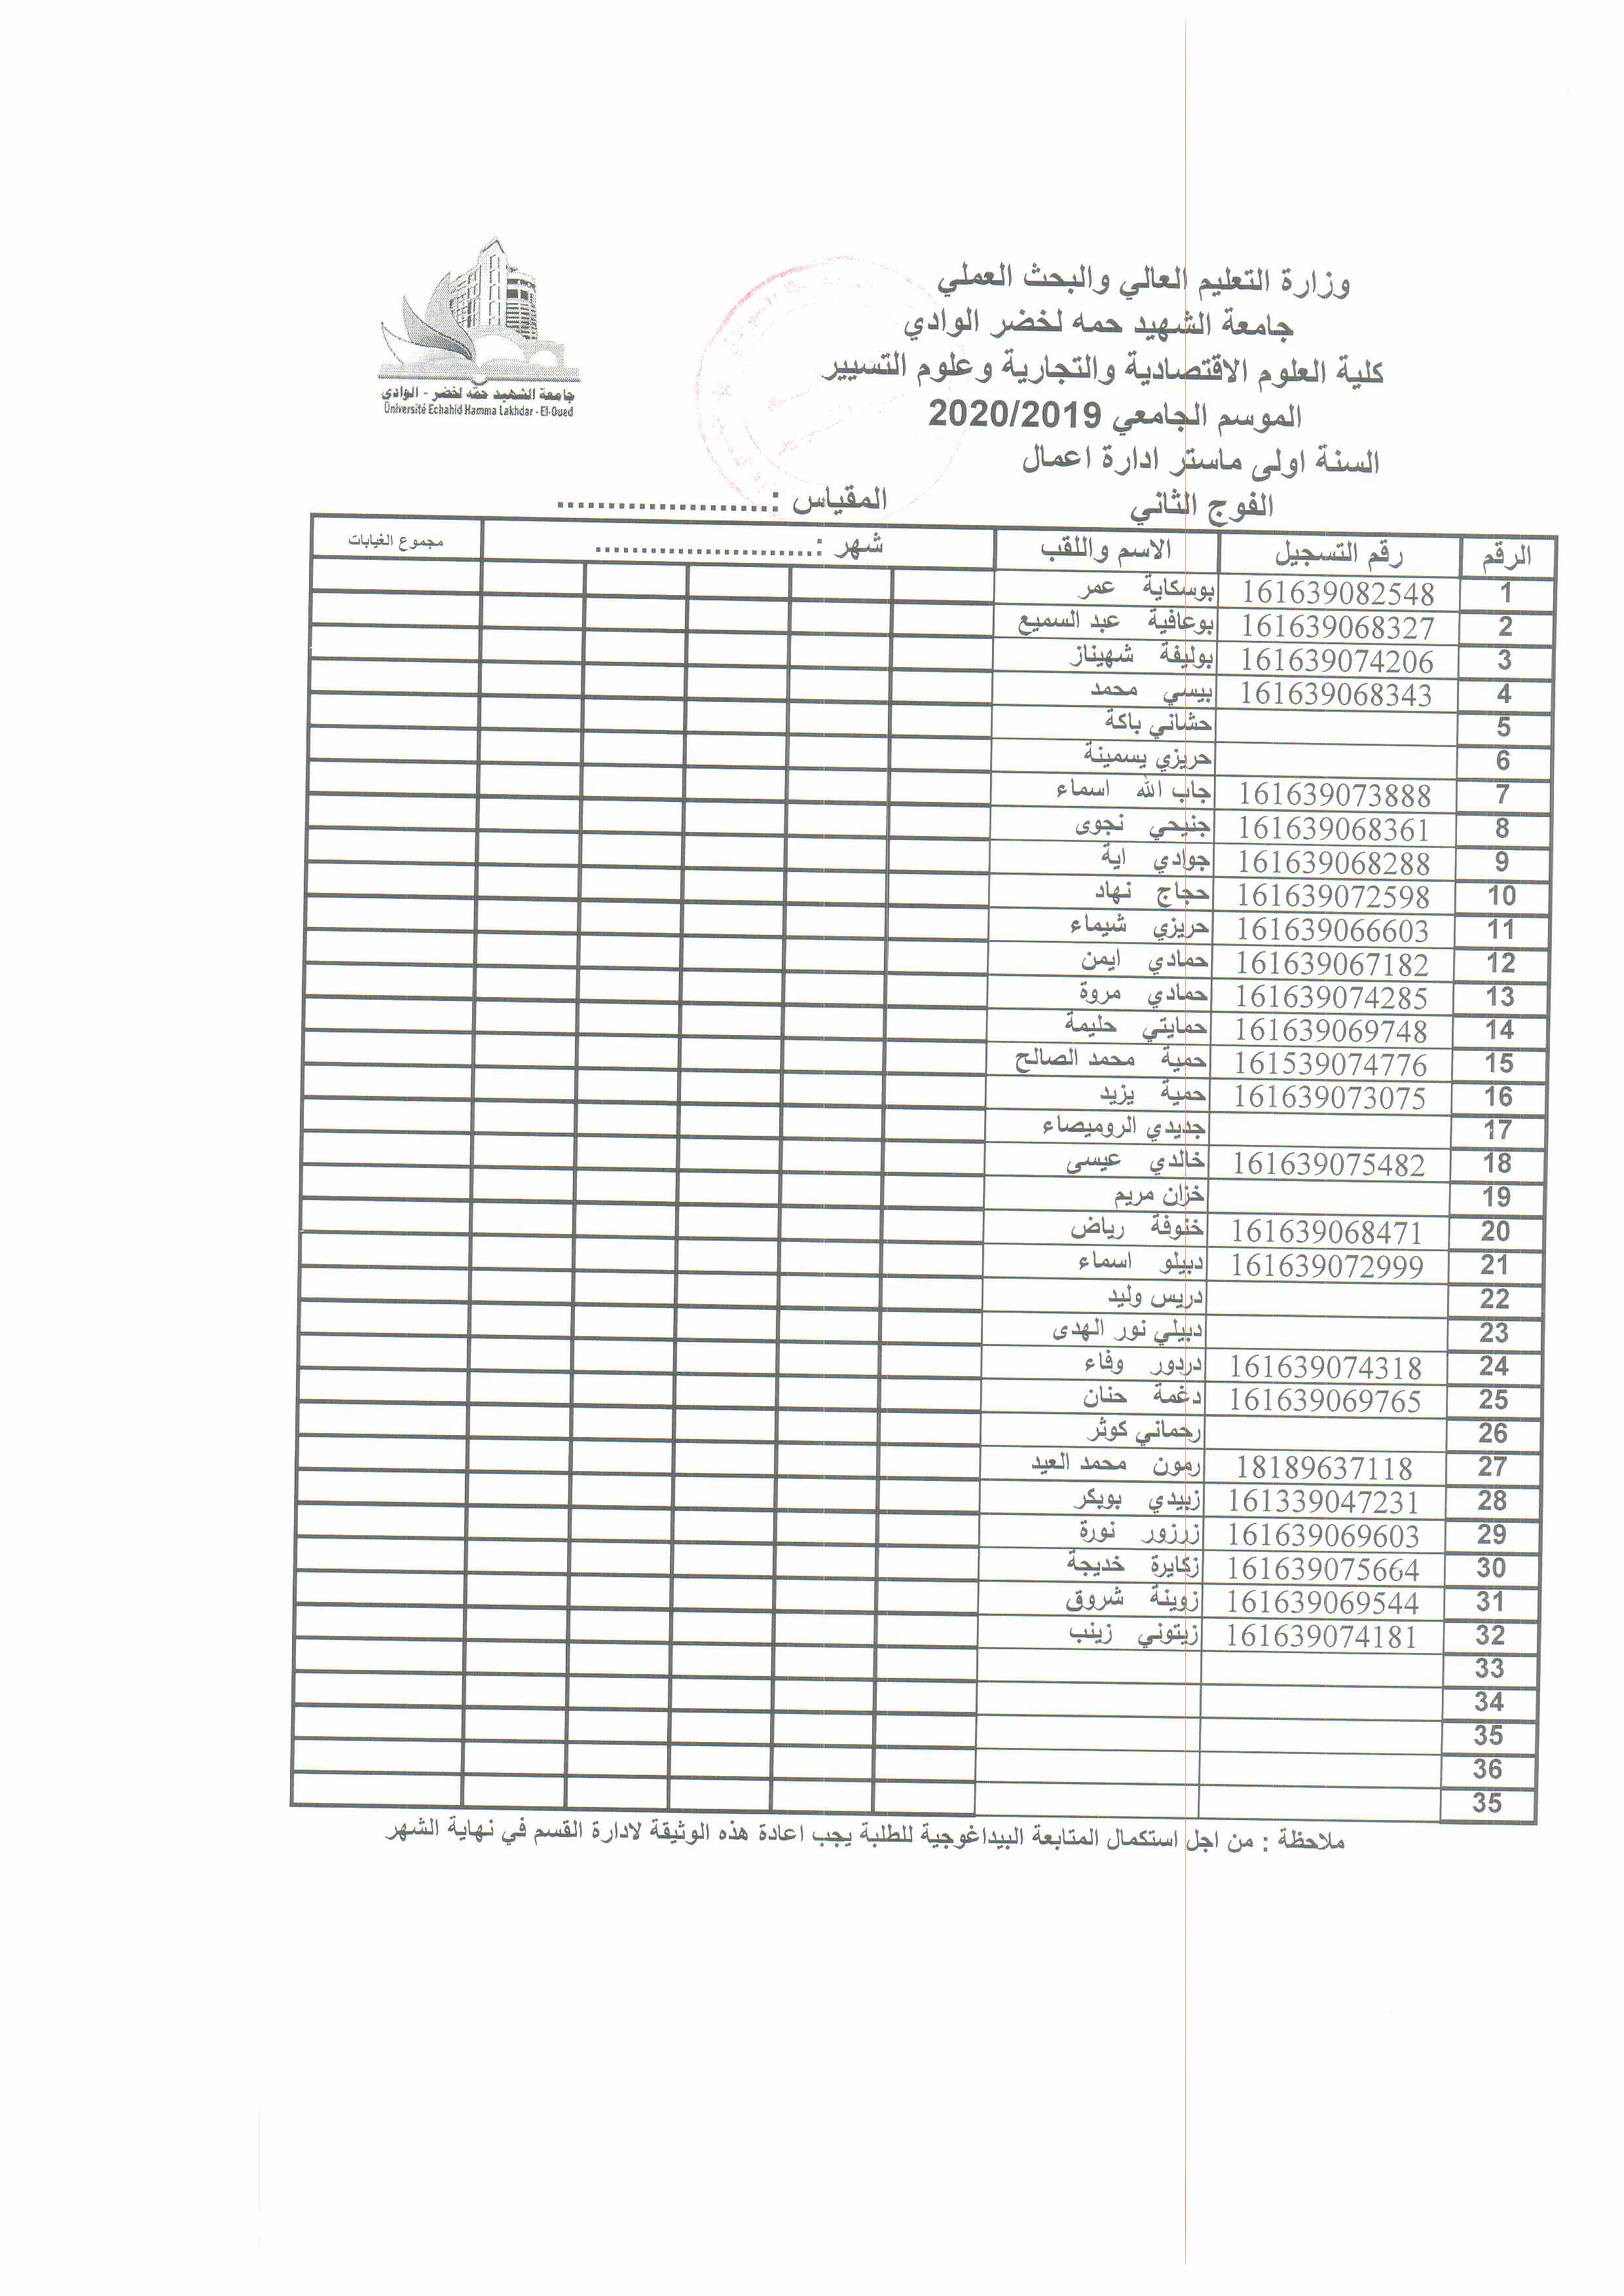 وزارة التعليم العالي والبحث العملي
جامعة الشهيد حمه لخضر الوادي
كلية العلوم الاقتصادية والتجارية وعلوم التسيير
الموسم الجامعي 2020/2019
السنة اولى ماستر ادارة اعمال
جامعة الشهيد حمّه لخضر - الوادي
Université Echahid Hamma Lakhdar - El-Oued
الفوج الثاني المقياس :.....................
الرقم رقم التسجيل الاسم واللقب شهر :...................... مجموع الغيابات
1 161639082548 بوسكاية عمر
2 161639068327 بوعافية عبد السميع
3 161639074206 بوليفة شهيناز
4 161639068343 بيسي محمد
5 حشاني باكة
6 حريزي يسمينة
7 161639073888 جاب الله اسماء
8 161639068361 جنيحي نجوى
9 161639068288 جوادي اية
10 161639072598 حجاج نهاد
11 161639066603 حريزي شيماء
12 161639067182 حمادي ايمن
13 161639074285 حمادي مروة
14 161639069748 حمايتي حليمة
15 161539074776 حمية محمد الصالح
16 161639073075 حمية يزيد
17 جديدي الروميصاء
18 161639075482 خالدي عيسى
19 خزان مريم
20 161639068471 خنوفة رياض
21 161639072999 دبيلو اسماء
22 دريس وليد
23 دبيلي نور الهدى
24 161639074318 دردور وفاء
25 161639069765 دغمة حنان
26 رحماني كوثر
27 18189637118 رمون محمد العيد
28 161339047231 زبيدي بوبكر
29 161639069603 زرزور نورة
30 161639075664 زكايرة خديجة
31 161639069544 زوينة شروق
32 161639074181 زيتوني زينب
33
34
35
36
35
ملاحظة : من اجل استكمال المتابعة البيداغوجية للطلبة يجب اعادة هذه الوثيقة لادارة القسم في نهاية الشهر